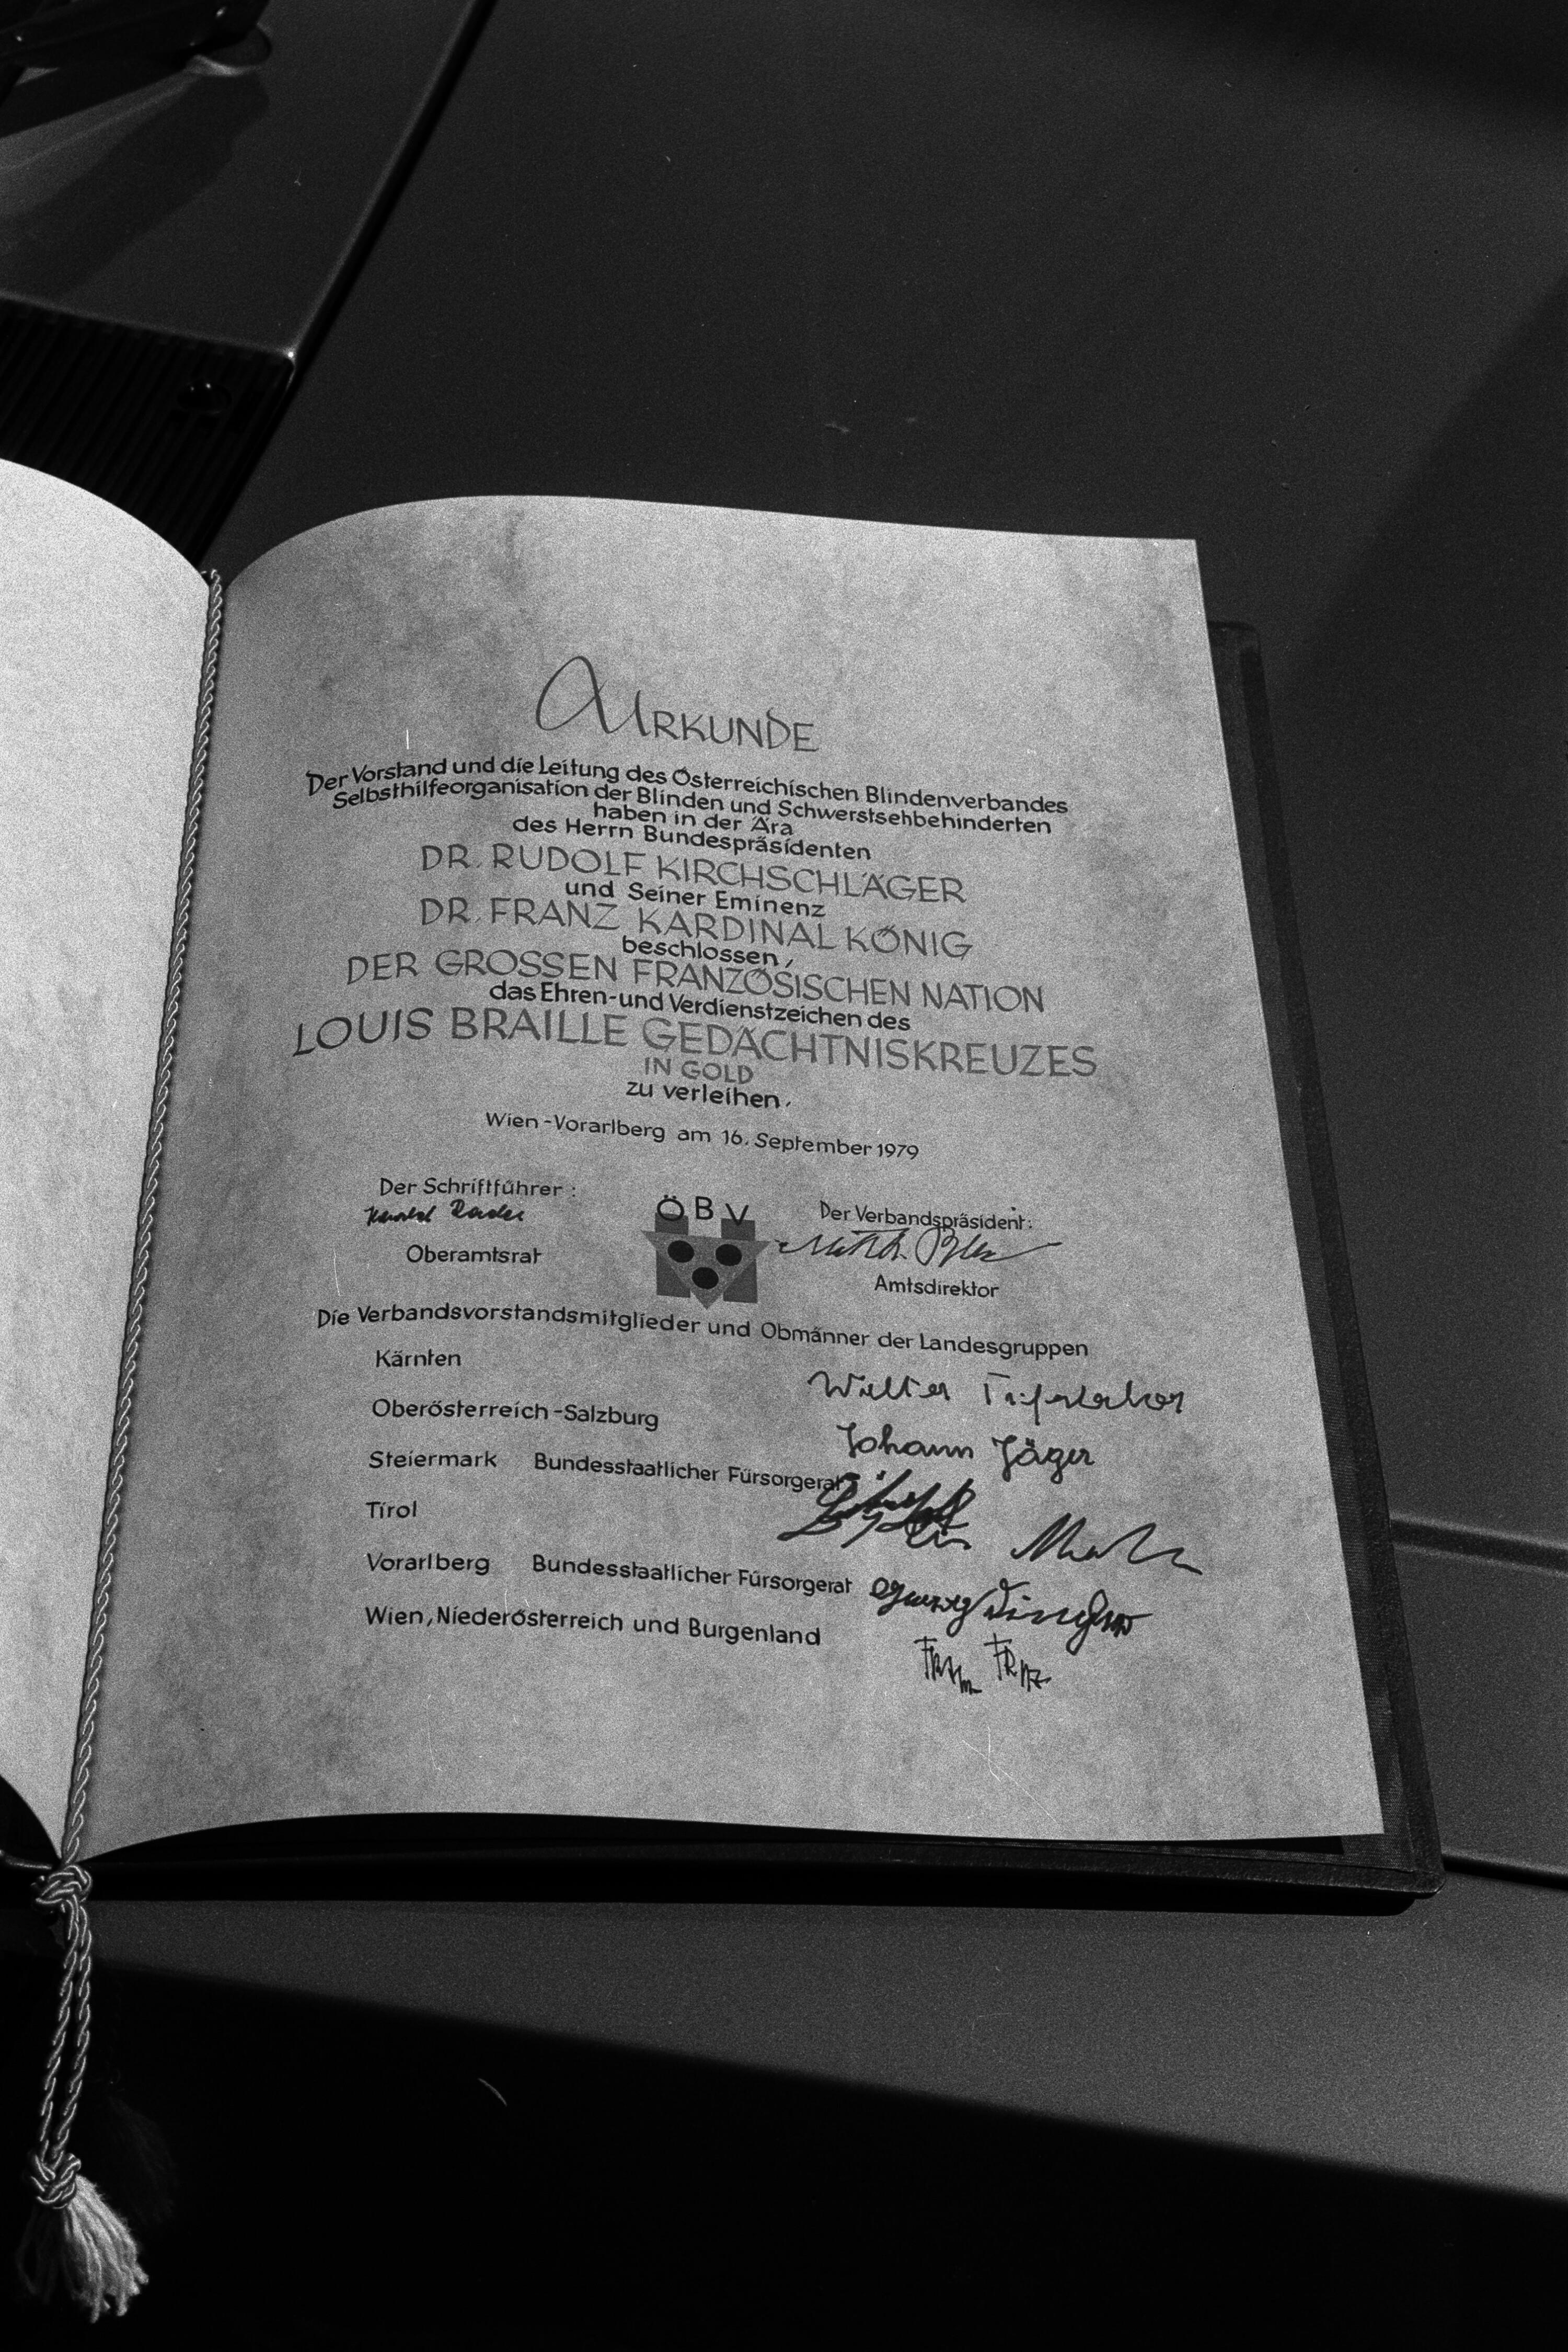 URKUNDE
Der Vorstand und die Leitung des Österreichischen Blindenverbandes
Selbsthilfeorganisation der Blinden und Schwerstsehbehinderten
haben in der Ära
des Herrn Bundespräsidenten
DR. RUDOLF KIRCHSCHLÄGER
und Seiner Eminenz
DR. FRANZ KARDINAL KÖNIG
beschlossen,
DER GROSSEN FRANZÖSISCHEN NATION
das Ehren-und Verdienstzeichen des
LOUIS BRAILLE GEDÄCHTNISKREUZES
IN GOLD
zu verleihen.
Wien-Vorarlberg am 16. September 1979
Der Schriftführer:
Oberamtsrat
ÖBV
Der Verbandspräsident:
Amtsdirektor
Die Verbandsvorstandsmitglieder und Obmänner der Landesgruppen
Kärnten Walter
Oberösterreich-Salzburg Johann Jäger
Steiermark Bundesstaatlicher Fürsorgerat
Tirol
Vorarlberg Bundesstaatlicher Fürsorgerat
Wien, Niederösterreich und Burgenland